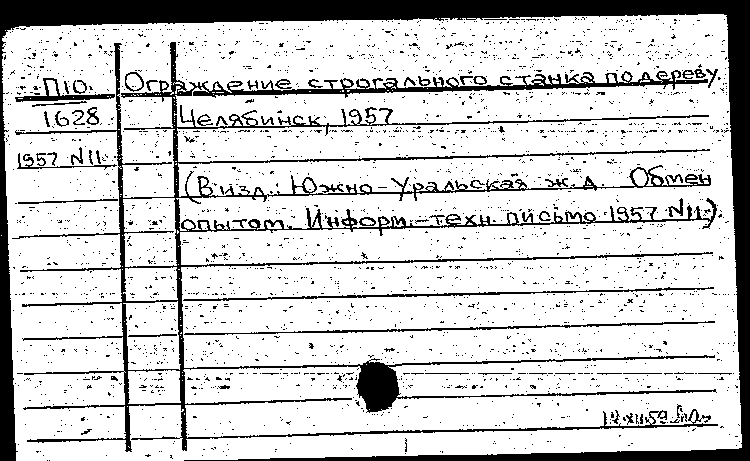 П10. Ограждение строгального станка по дереву.
1628 Челябинск, 1957
1957 N11.
(В изд.: Южно-Уральская ж.д. Обмен
опытом. Информ.-техн. письмо 1957 N11.).